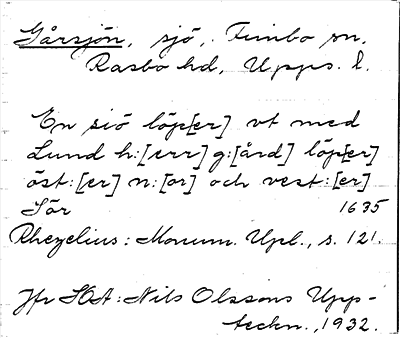 Gårsjön, sjö, Funbo sn,
Rasbo hd, Upps. l.
En siö löp[er] vt med
Lund h:[err] g:[ård] löp[er]
öst:[er] n:[or] och vest:[er]
Sör 1635
Rhezelius: Monum. Upl., s. 121.
Jfr SOA: Nils Olssons Upp-
teckn., 1932.